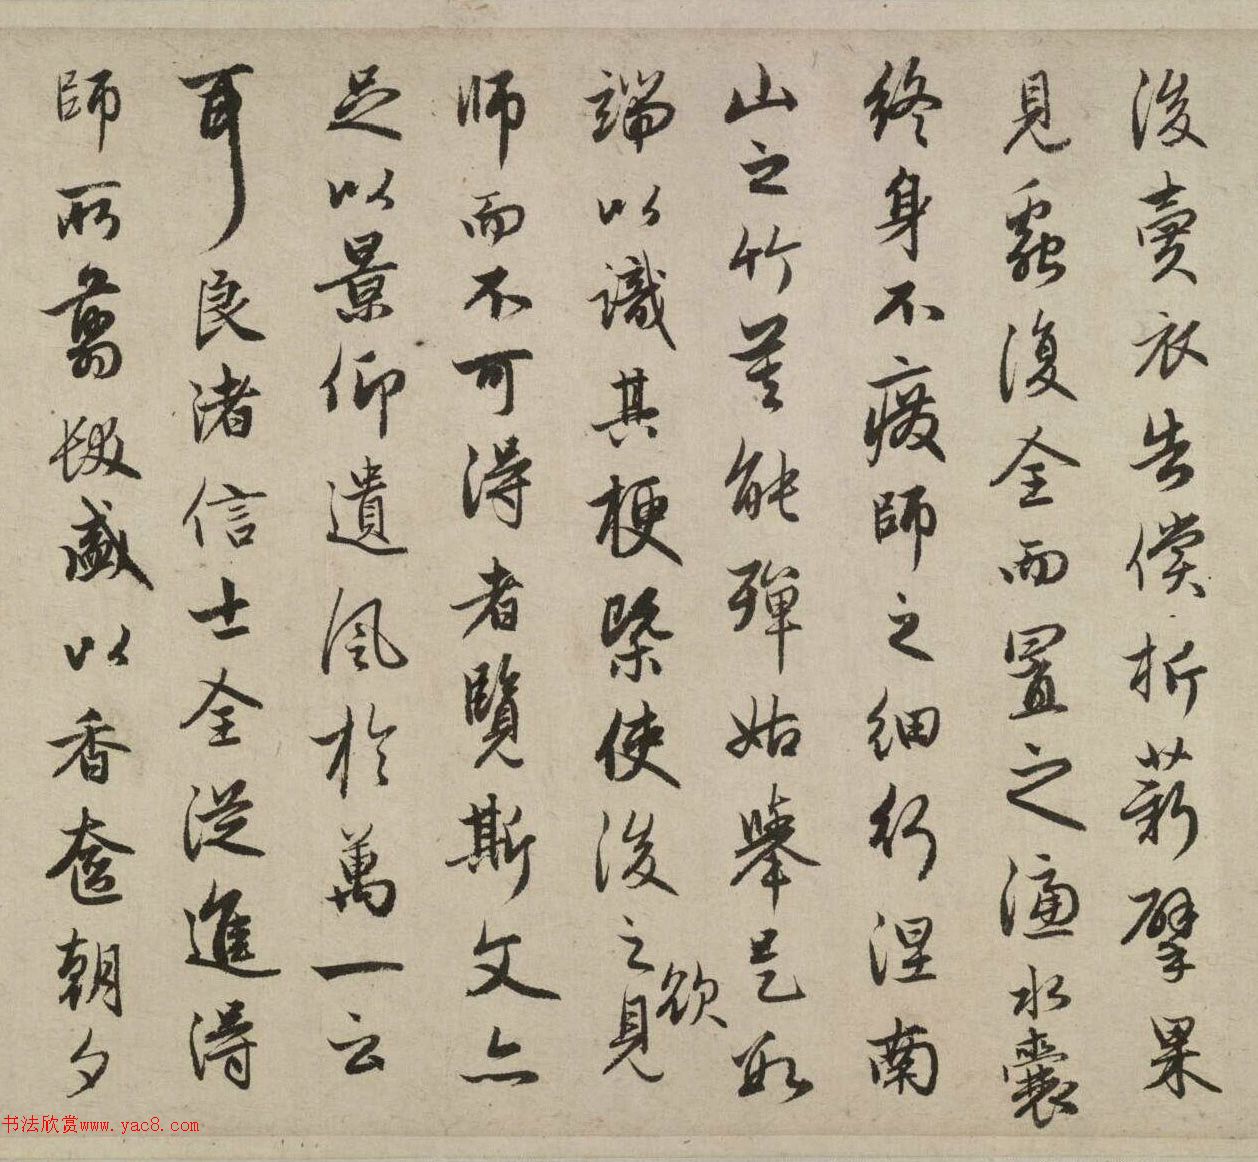 後賣衣告償析薪擘果
見蟲復全而置之漉水囊
終身不廢師之細行涅南
山之竹莫能殫姑舉是數
端以識其梗槩使後之欲見
師而不可得者覽斯文亦
足以景仰遺風於萬一云
耳良渚信士全從進得
師所翦髮盛以香奩朝夕
书法欣赏www.yac8.com